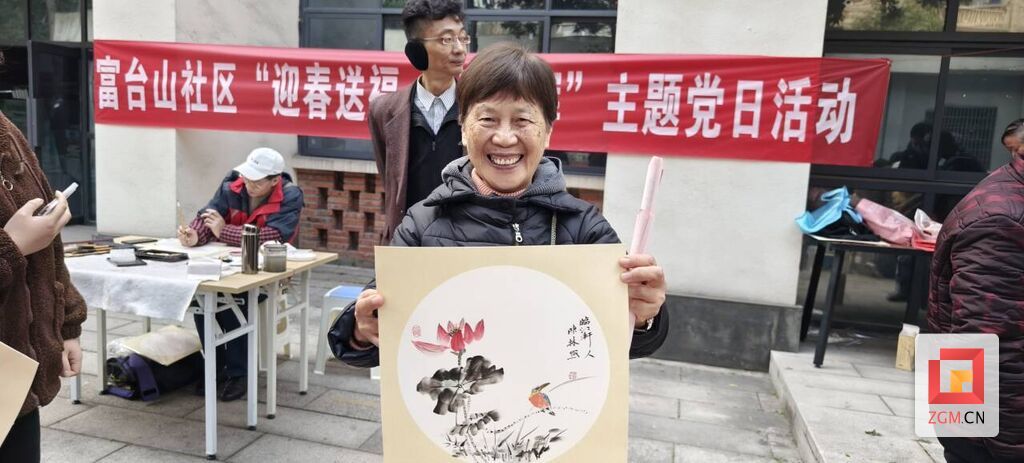 富台山社区“迎春送福 ” 主题党日活动
ZGM.CN